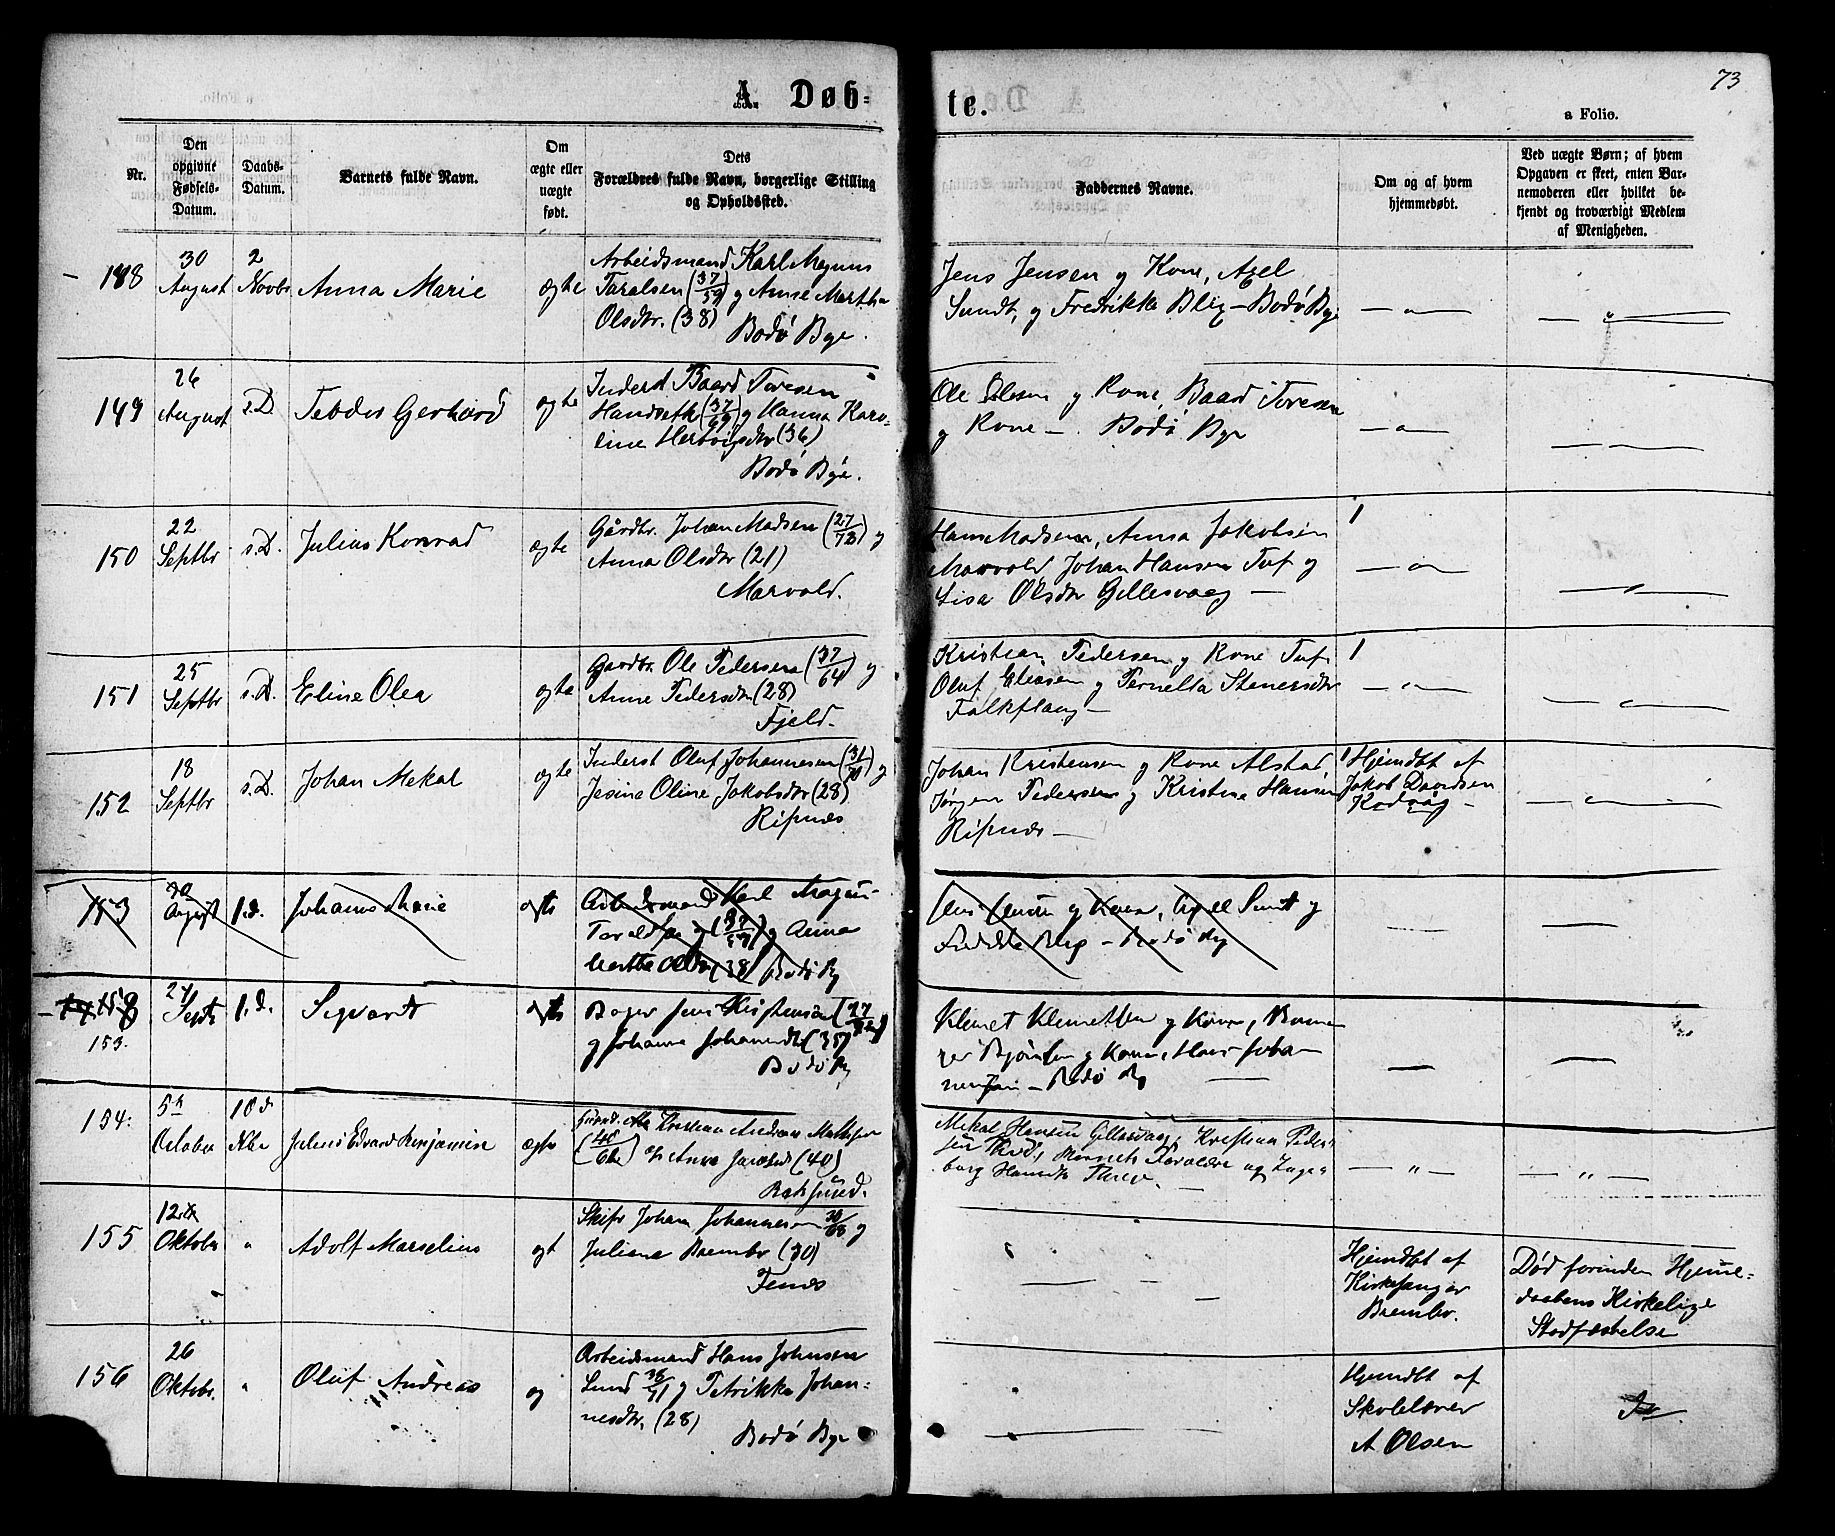 73
A. Døb-
te.
a Folio.
Nr.
Den
opgivne
Fødsels-
Datum.
Daabs-
Datum.
Barnets fulde Navn.
Om
ægte eller
uægte
født.
Dets
Forældres fulde Navn, borgerlige Stilling
og Opholdssted.
Faddernes Navne.
Om og af hvem
hjemmedøbt.
Ved uægte Børn; af hvem
Opgaven er skeet, enten Bar-
nemoderen eller hvilket be-
kjendt og troværdigt Medlem
af Menigheden.
148
30
August
2
Novbr
Anna Marie
ægte
Arbeidsmand Karl Magnus
Taralsen (37/59) og Anne Martha
Olsdtr. (38)
Bodø Bye.
Jens Jensen og Kone, Axel
Sundt, og Fredrikke Blix - Bodø Bye
— " —
— " —
149
26
August
s.D.
Teodor Gerhard
ægte
Inderst Baard Toresen
Handseth (37/69) og Hanna Karo-
line Hertvigsdtr (36)
Bodø Bye.
Ole Olesen og Kone, Baard Toresen
og Kone — Bodø Bye
— " —
— " —
150
22
Septbr
s.D.
Julius Konrad
ægte
Gårdbr. Johan Madsen (27/73) og
Anna Olsdtr (21)
Marvold.
Hans Madsen, Anna Jakobsen
Marvold, Johan Hansen Tuf og
Lisa Olsdtr Gillesvaag —
1
— " —
— " —
151
25
Septbr
s.D.
Eline Olea
ægte
Gardbr. Ole Pedersen (37/64) og
Anne Pedersdtr (28)
Fjeld.
Kristian Pedersen og Kone Tuf.
Oluf Eliasen og Pernella Stenersdtr
Falkflaug —
1
— " —
— " —
152
18
Septbr
s.D.
Johan Mekal
ægte
Inderst Oluf Johannesen (31/70) og
Jesine Oline Jakobsdtr (28)
Ripnes
Johan Kristensen og Kone Alstad
Jørgen Pedersen og Kristine Hansen
Ripnes —
1 Hjemdbt af
Jakob Davidsen
Kodvåg —
— " —
153
30
August
1.d.
Johanna Marie
ægte
Arbeidsmand Karl Magnus
Taraldsen (37/59) og Anna
Martha Olsdtr (38) Bodø By
Jens Jensen og Kone, Axel Sundt og
Fredrikke Blix — Bodø By
153.
24
Septr
1.d.
Sigvart
ægte
Bager Jens Kristensen
og Johanne Johannesdtr (35)
Bodø By
Klemet Klemetsen og Kone,
og Kone, Hans Johan-
— Bodø By
154.
5te
October
10de
Nbr
Julius Edvard Benjamin
ægte
Kristian Andreas Mathisen
og Anne (40)
Mekal Hansen Gillesvaag, Kristian Peder-
sen
borg Hansdtr
— " —
— " —
155
12te
Oktober
"
Adolf Marselius
ægt
Skifr Johan Johannesen og
Juliane Brembo (30)
Hjemdbt af
Kirkesanger
Brembo.
Død forinden Hjemme-
daabens Kirkelige
Stadfæstelse
156
26
Oktobr.
"
Oluf Andreas
æg
Arbeidsmand Hans Johnsen
Lund 36/71 og Petrikke Johan-
nesdtr. (28)
Bodø Bye
Hjemdbt af
Skolelærer
A Olsen
Do